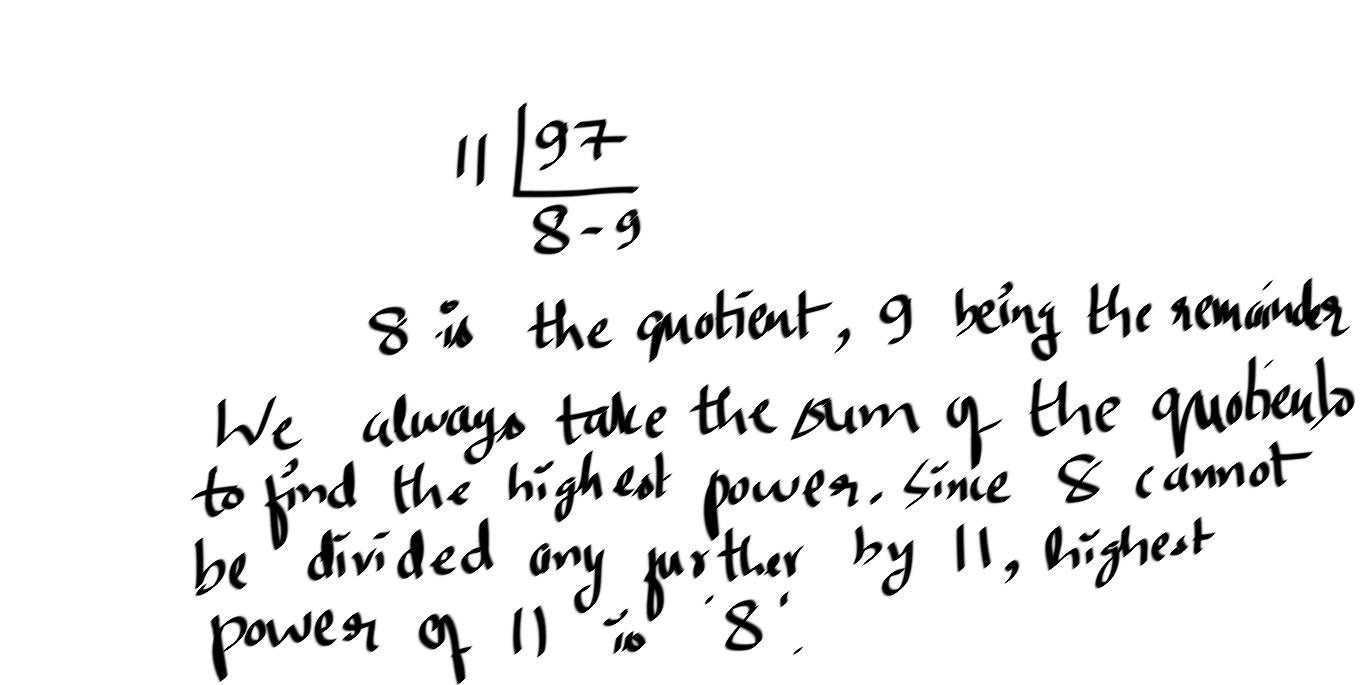 11 | 97
8 - 9
8 is the quotient, 9 being the remainder
We always take the sum of the quotients
to find the highest power. Since 8 cannot
be divided any further by 11, highest
power of 11 is '8'.